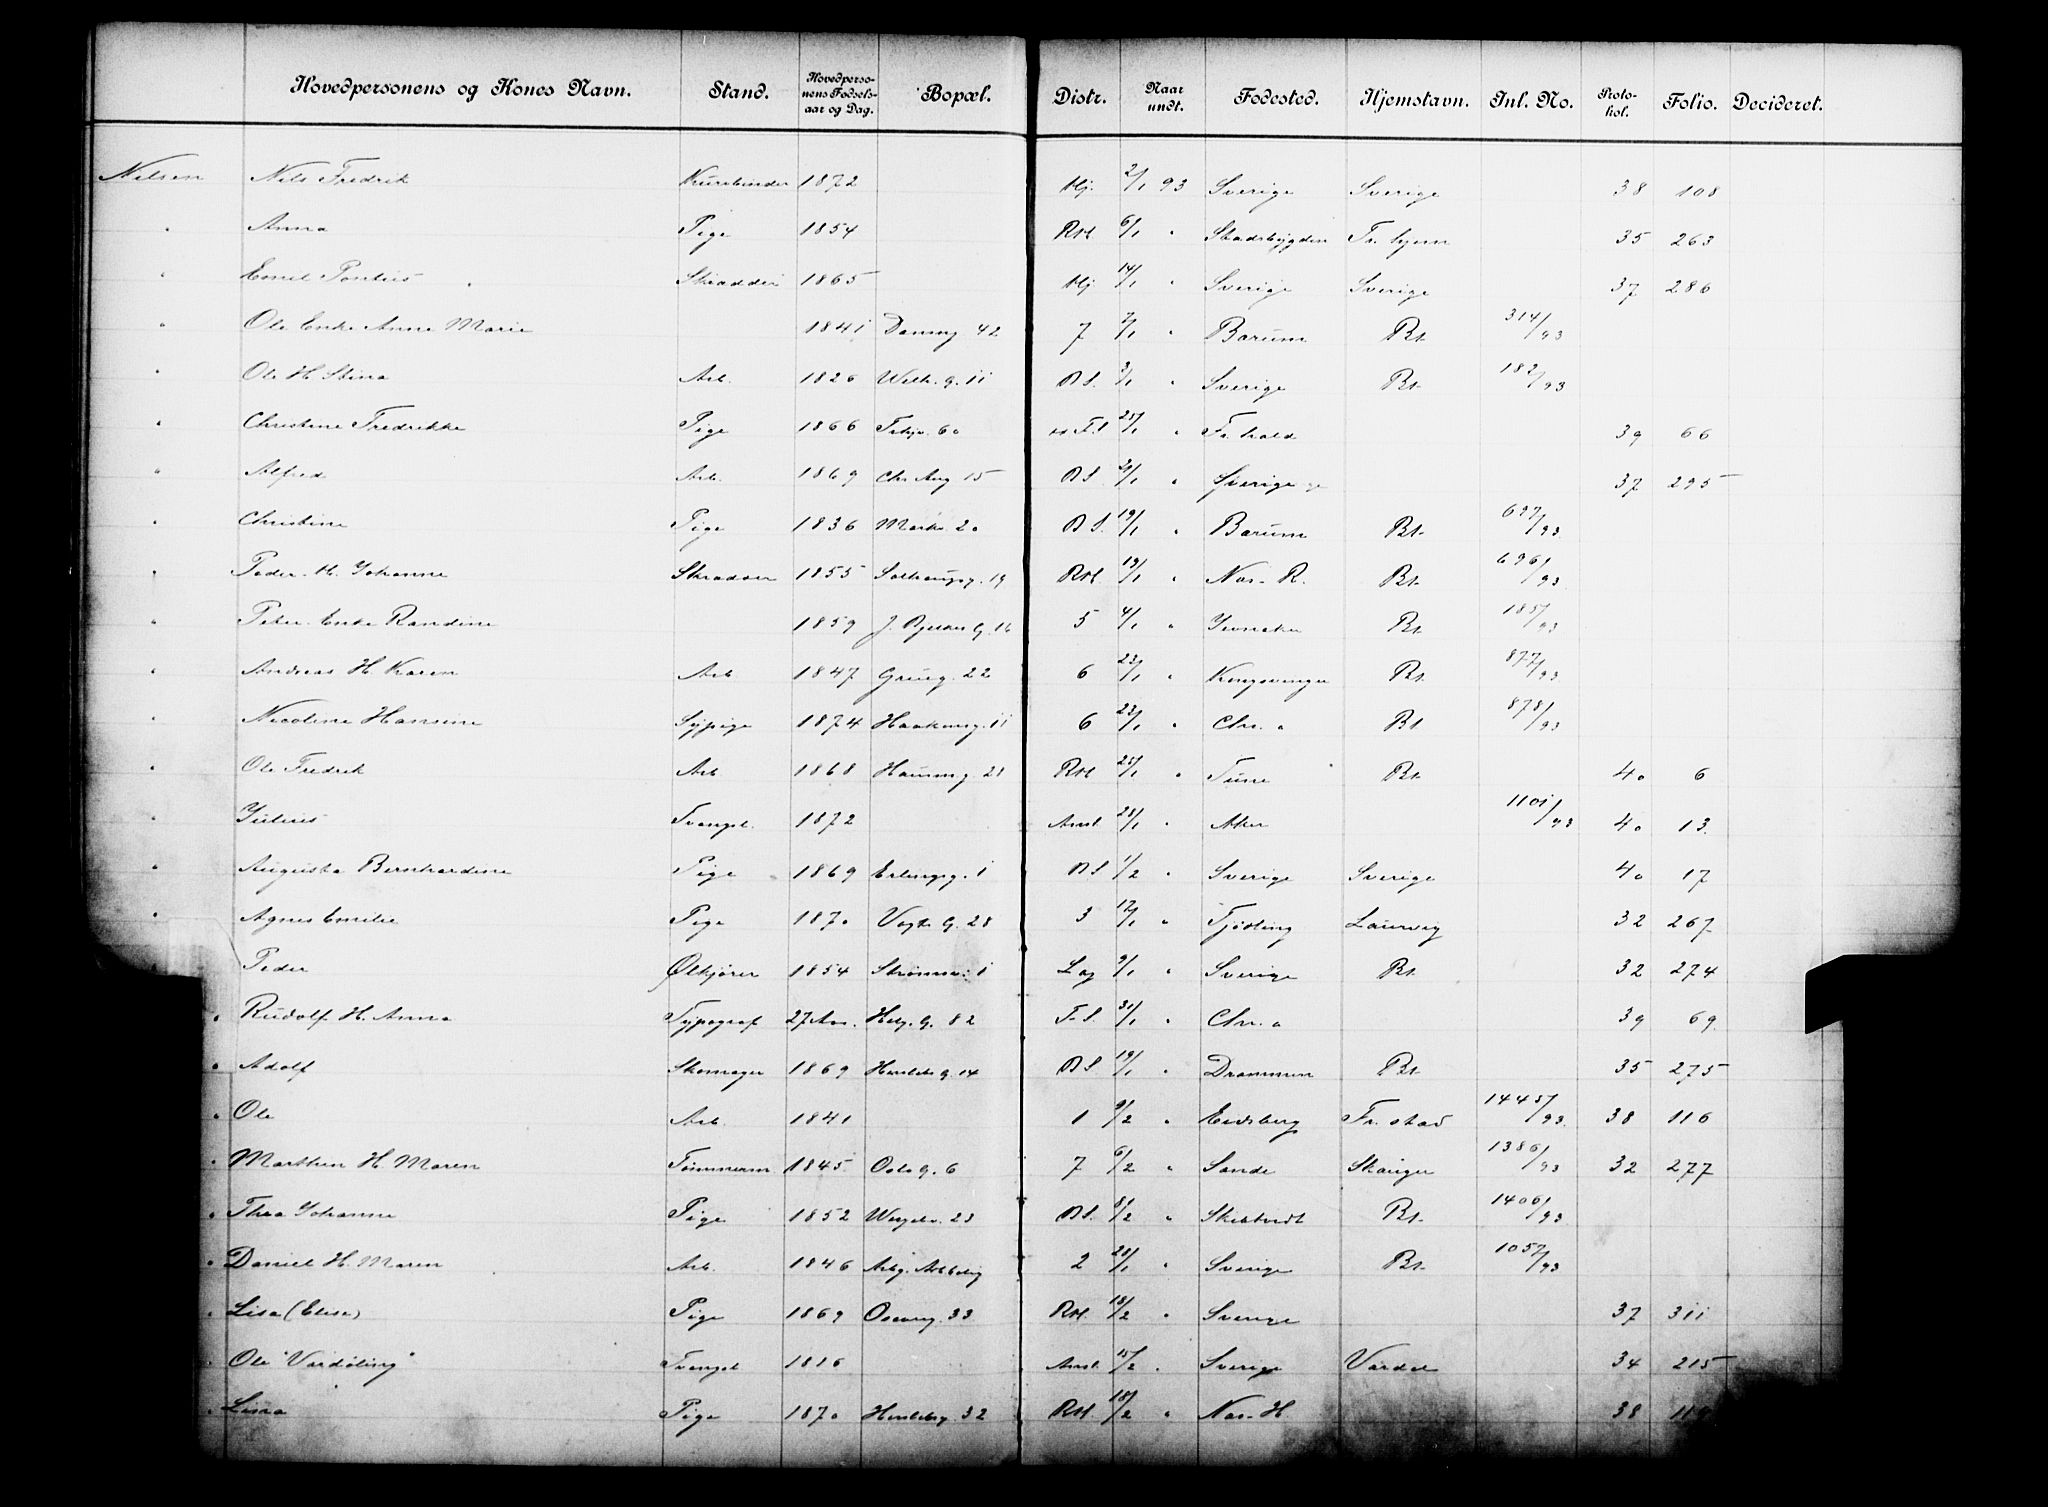 Hovedpersonens og Kones Navn. Stand. Hovedperso-nens Fødsels-aar og Dag. Bopæl. Distr. Naar undt. Fødested. Hjemstavn. Inl. No. Proto-kol. Folio. Decideret.
Nilsen Nils Fredrik Kurvbinder 1872 Hj. 2/1 93 Sverige Sverige 38 108
" Anna Pige 1854 RH. 6/1 " Stadsbygden Tr. hjem 35 263
" Emil Pontus Skrædder 1865 Hj 14/1 " Sverige Sverige 37 286
" Ole Enke Anne Marie 1841 42 7 7/1 " Bærum Bt. 314/93
" Ole H. Stina Arb. 1826 Welh. g. 11 BS. 3/1 " Sverige Bt. 182/93
" Christine Fredrikke Pige 1866 60 F.S 25/1 " Fr. hald 39 66
" Alfred Arb. 1869 Chr Aug 15 BS. 21/1 " Sverige 37 295
" Christine Pige 1836 Markv. 20 BS. 19/1 " Bærum Bt. 697/93
" Peder H. Johanne Skrædder 1855 19 RH. 19/1 " Næs. R. Bt. 696/93
" Peter Enke Randine 1859 J. Bjelkes G. 16 5 4/1 " Jevnaker Bt 185/93
" Andreas H. Karen Arb 1847 Grueg. 22 6 23/1 " Kongsvinger Bt. 877/93
" Nicoline Hansine Sypige 1874 Haakonsg. 11 6 23/1 " Chr. a Bt 878/93
" Ole Fredrik Arb 1868 Hausmg 21 RH 25/1 " Tune Bt. 40 6
" Julius Tvangsl. 1872 Amt. 28/1 " Aker 1101/93 40 13.
" Augusta Bernhardine Pige 1869 Erlingsg. 1 BS 1/2 " Sverige Sverige 40 17
" Agnes Emilie Pige 1870 Vogts G. 28 3 12/1 " Tjødling Laurvig 32 267
" Peder Ølkjører 1854 Strømsv. 1 Lag 9/1 " Sverige Bt. 32 274
" Rudolf H. Anna Typograf 27 Aar. Helg. G. 82 F.S. 31/1 " Chr. a 39 69.
" Adolf Skomager 1869 Herslebs G. 14 BS. 19/1 " Drammen Bt. 35 275
" Ole Arb. 1841 1 9/2 " Eidsberg Fr. stad 1445/93. 38 116
" Marthin H. Maren Tømmerm 1845. Oslo g. 6 7 6/2 " Sande Skauger 1386/93 32 277
" Thea Johanne Pige 1852 Wergelv. 23 BS. 8/2 " Skibtvedt Bt. 1406/93
" Daniel H. Maren Arb. 1846 2 28/1 " Sverige Bt. 1057/93
" Lisa (Elise) Pige 1869 Oscarsg. 33 RH. 18/2 " Sverige 37 311
" Ole "Vardøling" Tvangsl 1816 Amt. 15/2 " Sverige Vardø 34 215
" Lina Pige 1870 Herslebsg. 32 RH. 18/2 " Næs. H. 38